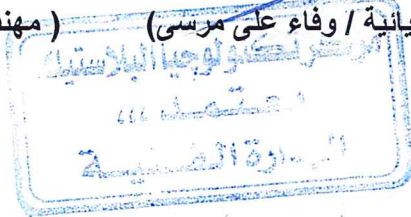 يائية / وفاء على مرسى) ( مهند
مركز تكنولوجيا البلاستيك
معتمد ،،،
الإدارة الفنية